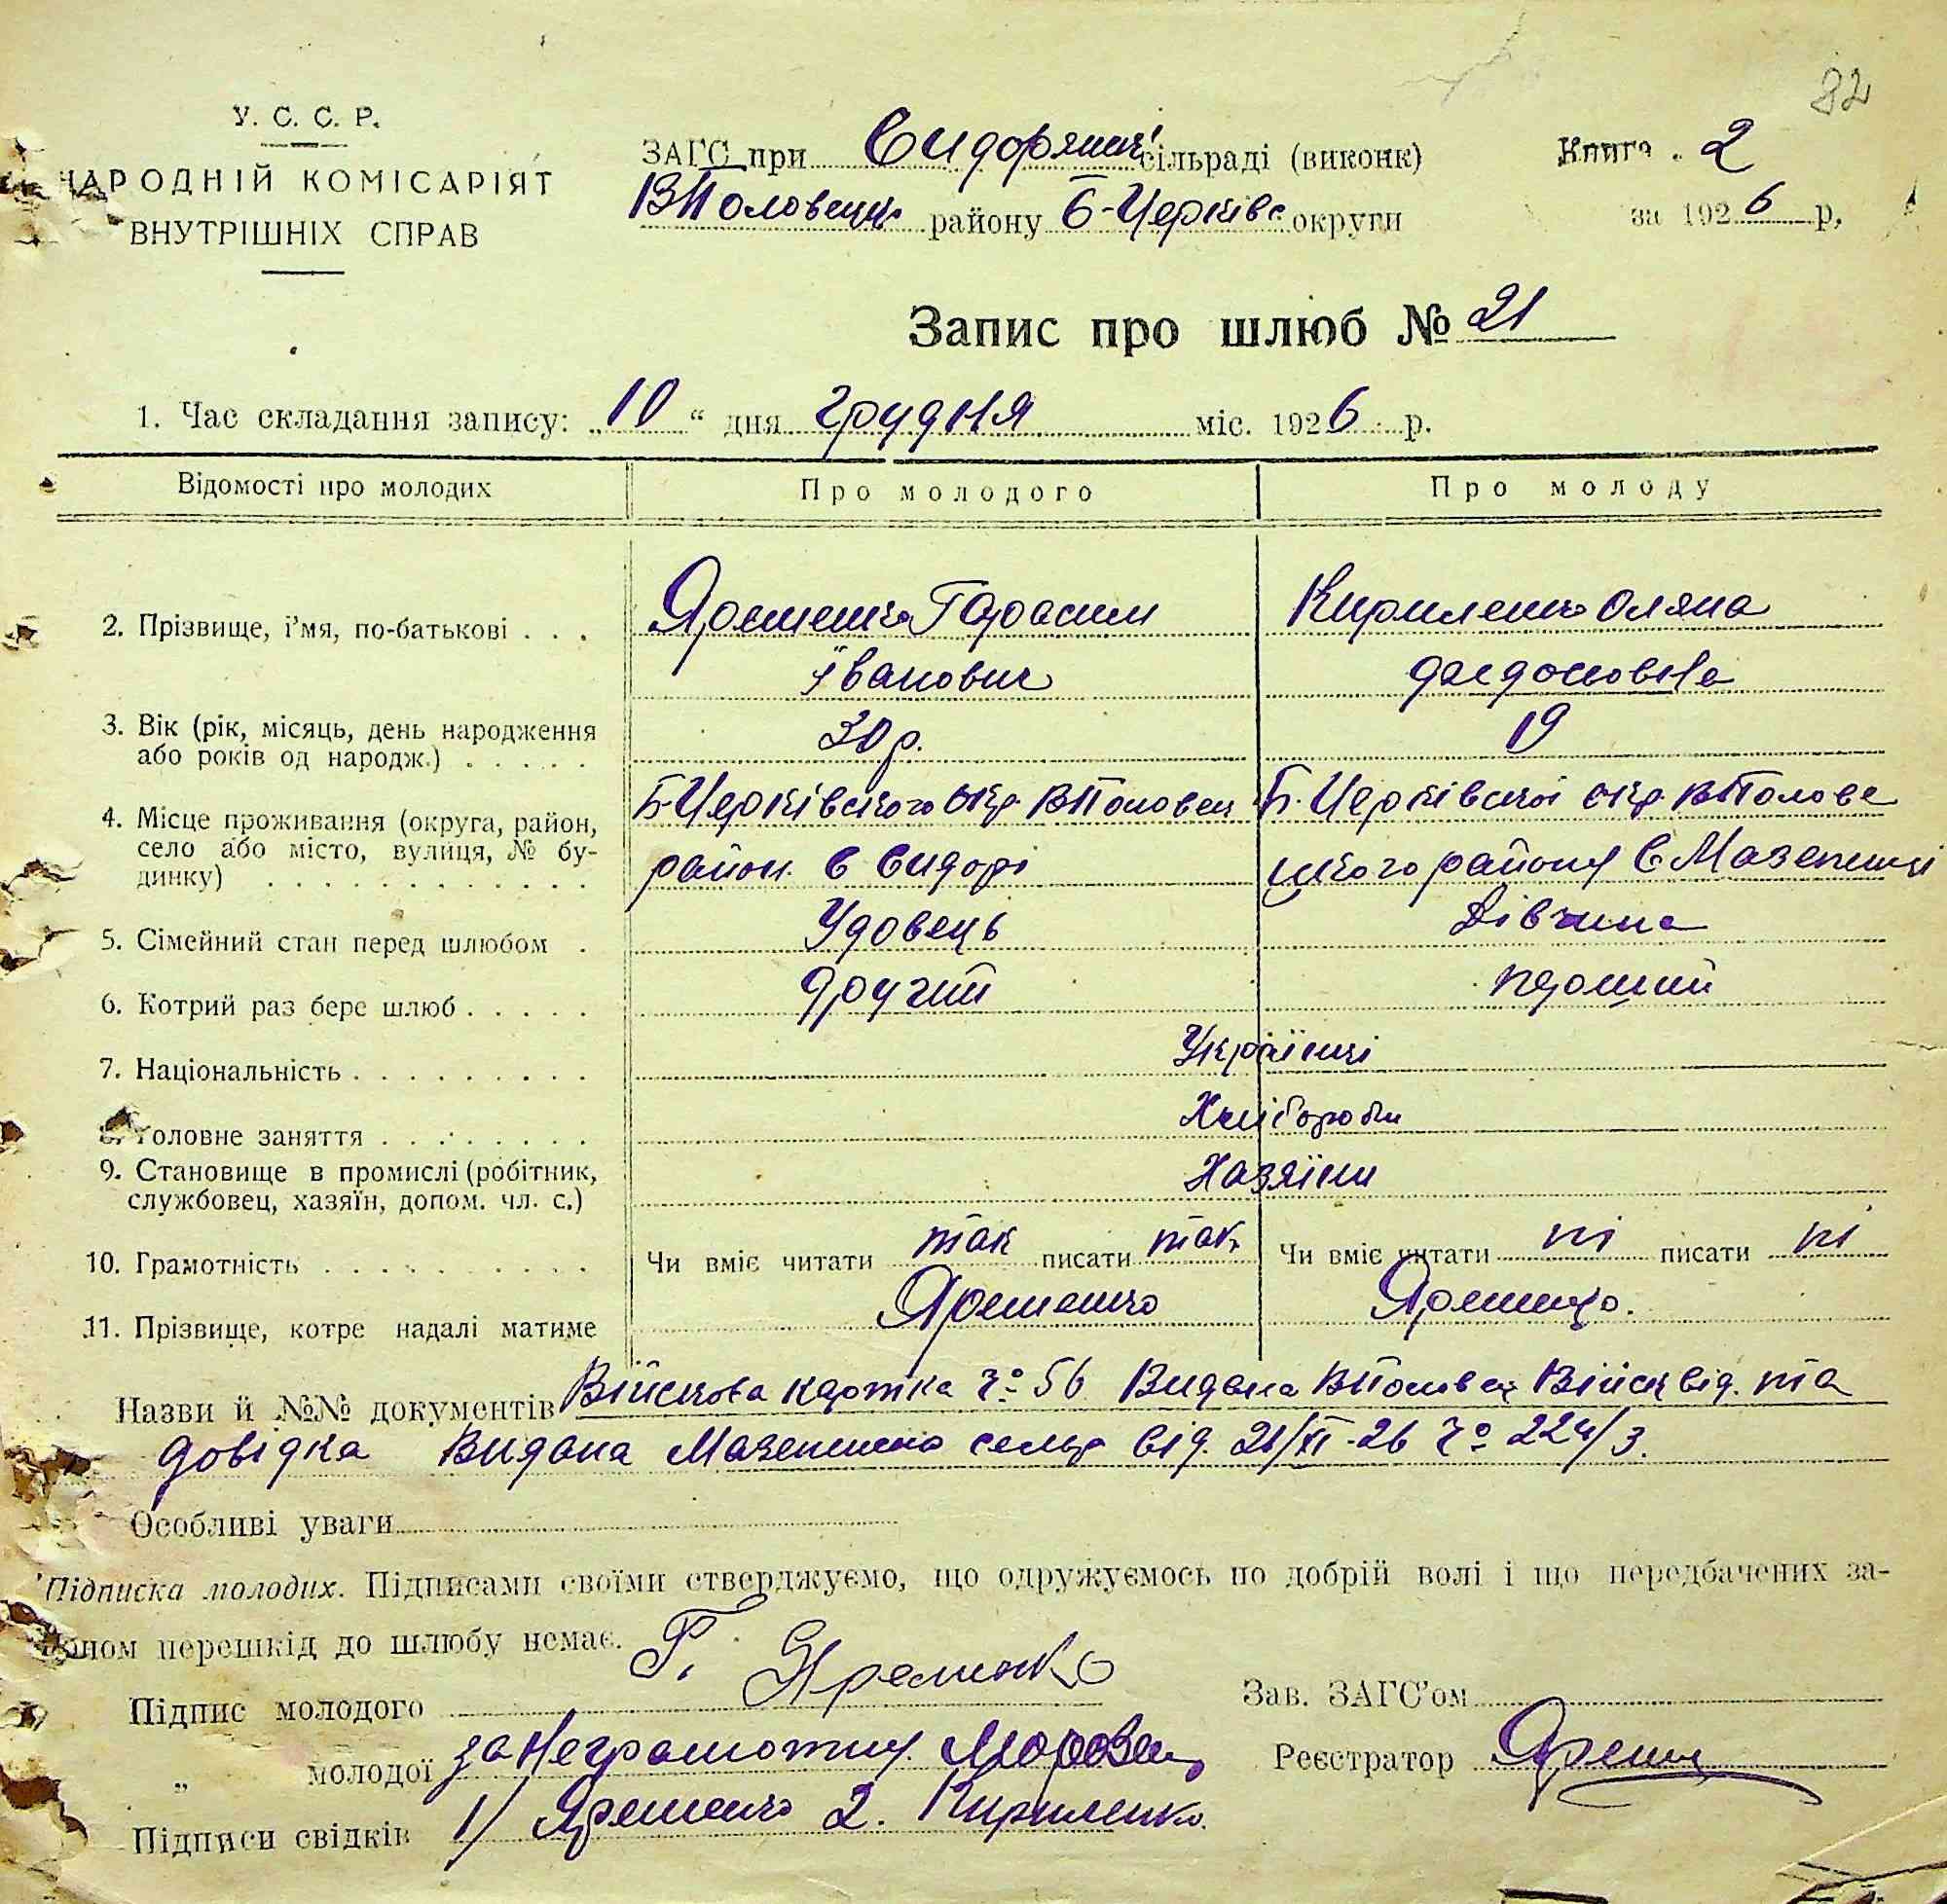 82
У. С. С. Р.
НАРОДНІЙ КОМІСАРІЯТ
ВНУТРІШНІХ СПРАВ
ЗАГС при Сидорянсь сільраді (виконк)
ВПоловецьк району Б-Церківс округи
Книга 2
за 1926 р,
Запис про шлюб № 21
1. Час складання запису: „10“ дня грудня міс. 1926 р.
Відомості про молодих Про молодого Про молоду
2. Прізвище, і'мя, по-батькові . . . Яременко Гарасим Кириленко Оляна
Іванович
3. Вік (рік, місяць, день народження або років од народж.) . . . . . 30 р. 19
4. Місце проживання (округа, район, село або місто, вулиця, № будинку) . . . Б-Церківского окр. ВПоловец Б. Церківской окр. ВПолове
район. с Сидорі цкого району С Мазепинці
5. Сімейний стан перед шлюбом . Удовець Дівчина
6. Котрий раз бере шлюб . . . . . Другий перший
7. Національність . . . . . . . . . Українці
8. Головне заняття . . . . . . . . Хлібороби
9. Становище в промислі (робітник, службовец, хазяїн, допом. чл. с.) Хазяїни
10. Грамотність . . . . . . . . . . Чи вміє читати так писати так Чи вміє читати ні писати ні
11. Прізвище, котре надалі матиме Яременко Яременко.
Назви й №№ документів Військова картка Ч° 56 Видана ВПоловец Військ від. та
довідка Видана Мазепинско сельр від. 21/XI-26 Ч°
Особливі уваги
Підписка молодих. Підписами своїми стверджуємо, що одружуємось по добрій волі і що передбачених за-
коном перешкід до шлюбу немає.
Підпис молодого Г. Яременко
Зав. ЗАГС'ом
„ молодої за неграмотну
Реєстратор
Підписи свідків 1/ Яременко 2. Кириленко